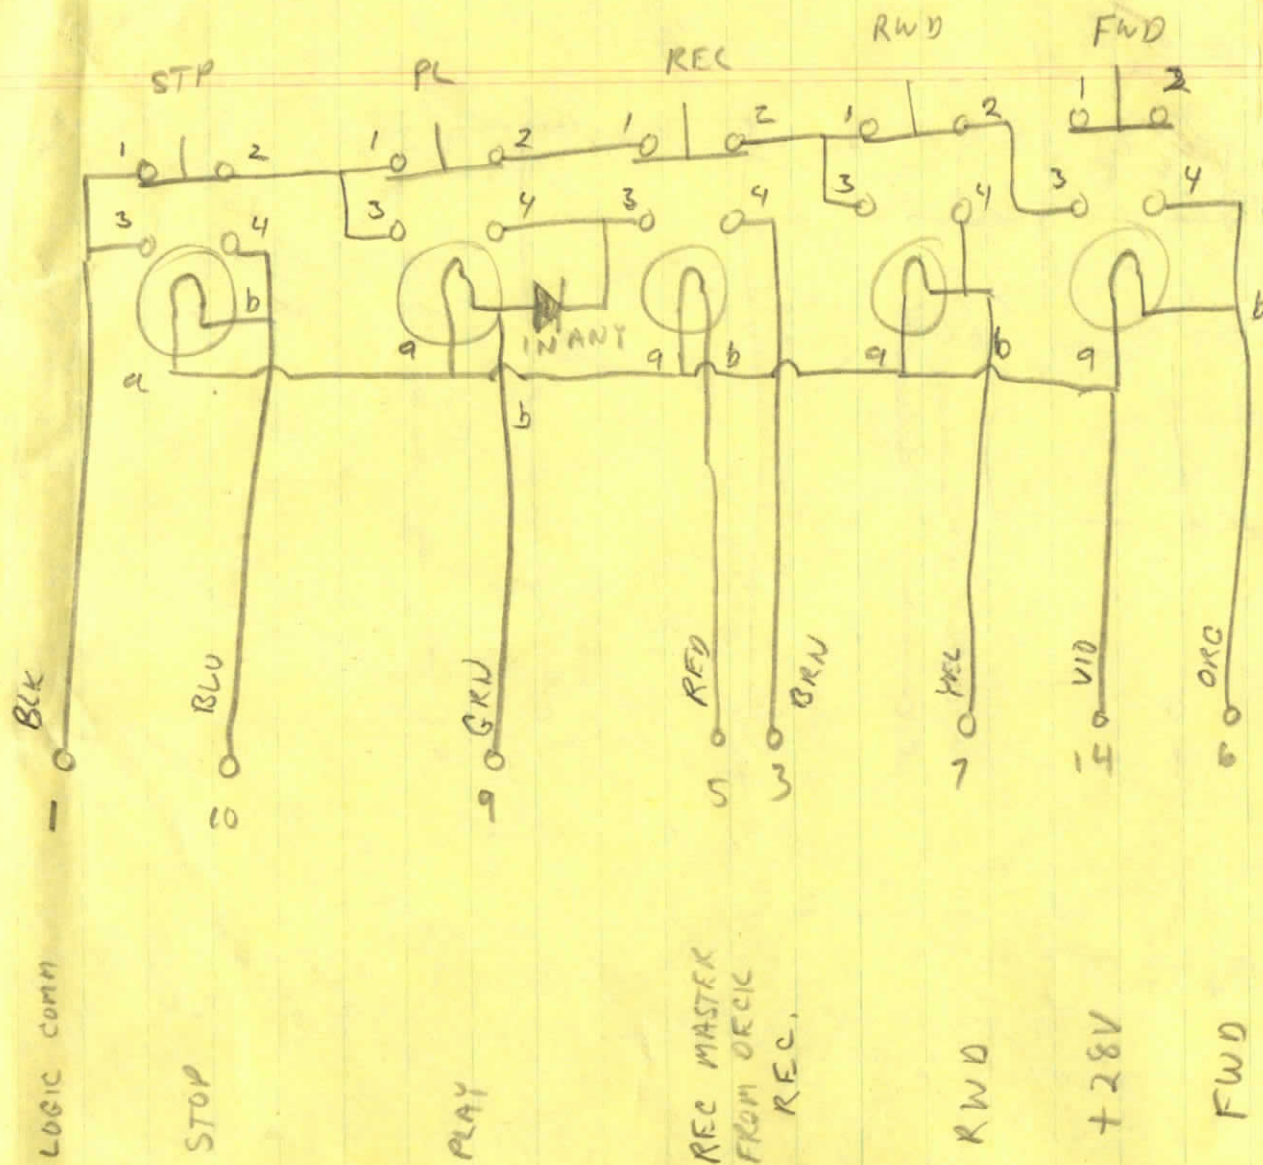 STP PL REC RWD FWD
1 2 1 2 1 2 1 2 1 2
3 4 3 4 3 4 3 4 3 4
b b
IN ANY
a a a b a b a
b
BLK BLU GRN RED BRN YEL VIO ORG
1 10 9 5 3 7 14 6
LOGIC COMM
STOP
PLAY
REC MASTER
FROM DECK
REC.
RWD
+28V
FWD